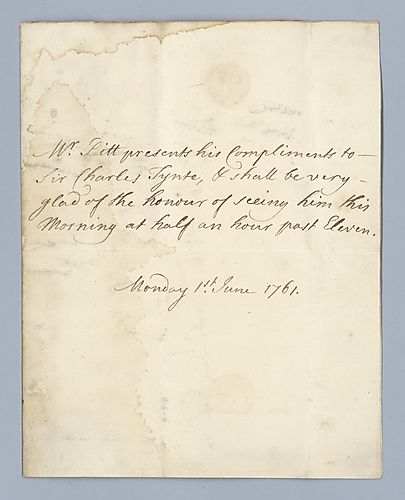 Mr. Pitt presents his Compliments to —
Sir Charles Tynte, & shall be very —
glad of the honour of seeing him this
Morning at half an hour past Eleven.
Monday 1st. June 1761.